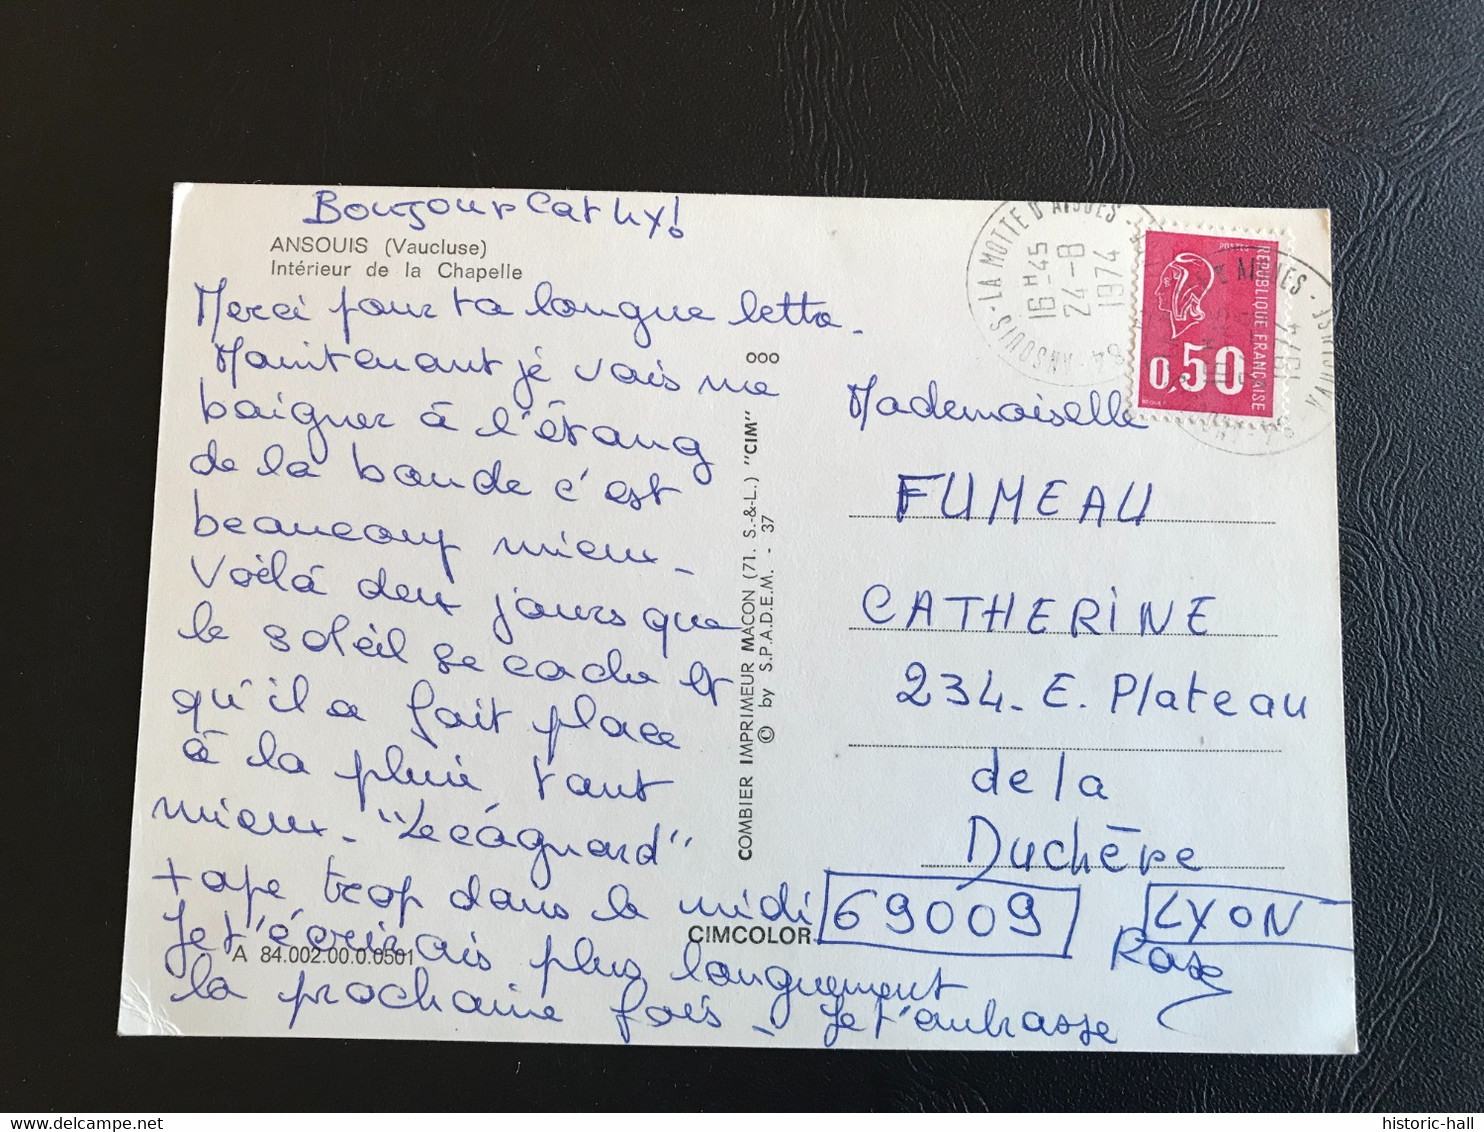 Bonjour Cathy!
ANSOUIS (Vaucluse)
Intérieur de la Chapelle
Merci pour ta longue lettre.
Maintenant je vais me
baigner à l'étang
de la bonde c'est
beaucoup mieux.
Voilà deux jours que
le soleil se cache et
qu'il a fait place
à la pluie tant
mieux. "Le cagnard"
tape trop dans le midi
Je t'écrirais plus longuement
la prochaine fois. Je t'embrasse
Rose
A 84.002.00.0.0501
CIMCOLOR
ooo
COMBIER IMPRIMEUR MACON (71. S.-&-L.) "CIM"
© by S.P.A.D.E.M. - 37
Mademoiselle
FUMEAU
CATHERINE
234. E. Plateau
de la
Duchère
69009 LYON
LA MOTTE D'AIGUES - 84 ANSOUIS
16 H 45
24-8
1974
POSTES
REPUBLIQUE FRANÇAISE
0,50
historic-hall